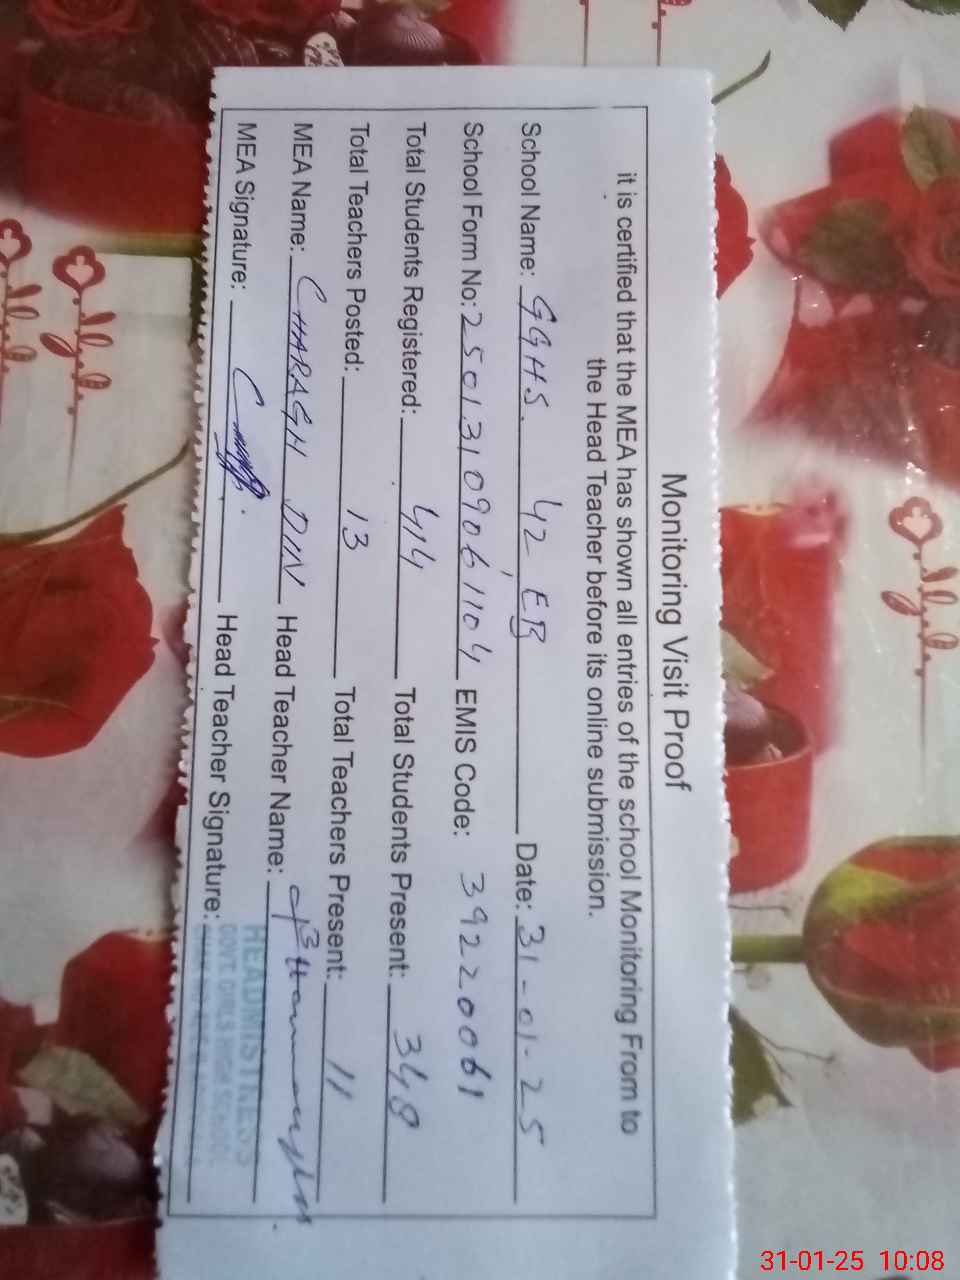 Monitoring Visit Proof
it is certified that the MEA has shown all entries of the school Monitoring From to
the Head Teacher before its online submission.
School Name: GGHS. 42 EB Date: 31-01-25
School Form No: 2501310906 1104 EMIS Code: 39220061
Total Students Registered: 414 Total Students Present: 348
Total Teachers Posted: 13 Total Teachers Present: 11
MEA Name: CHARAGH DIN Head Teacher Name:
MEA Signature: Head Teacher Signature:
HEADMISTRESS
GOVT. GIRLS HIGH SCHOOL
31-01-25 10:08